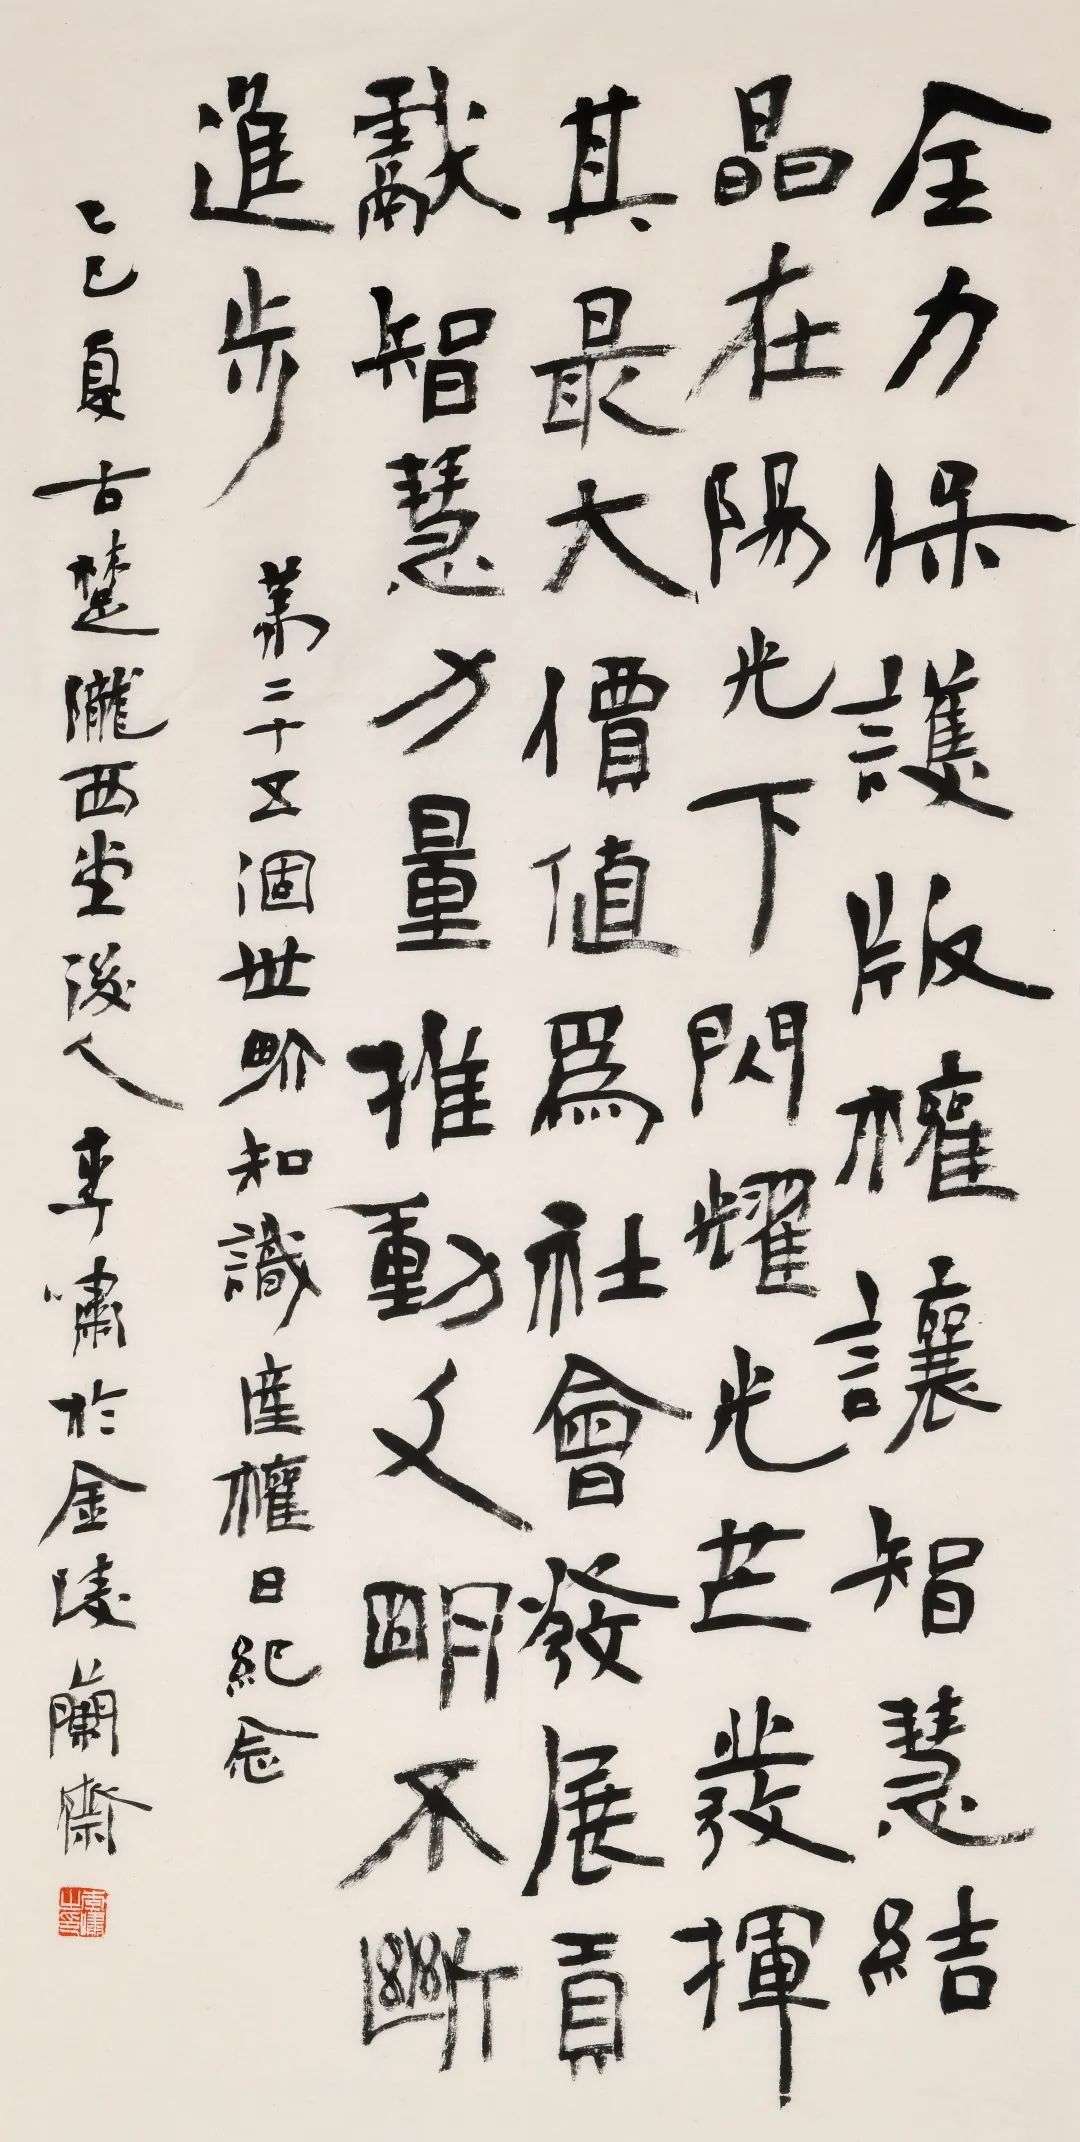 全力保護版權讓智慧結
晶在陽光下閃耀光芒發揮
其最大價值為社會發展貢
獻智慧力量推動文明不斷
進步
第二十五個世界知識產權日紀念
乙巳夏古楚隴西堂後人李嘯於金陵蘭齋
李嘯之印